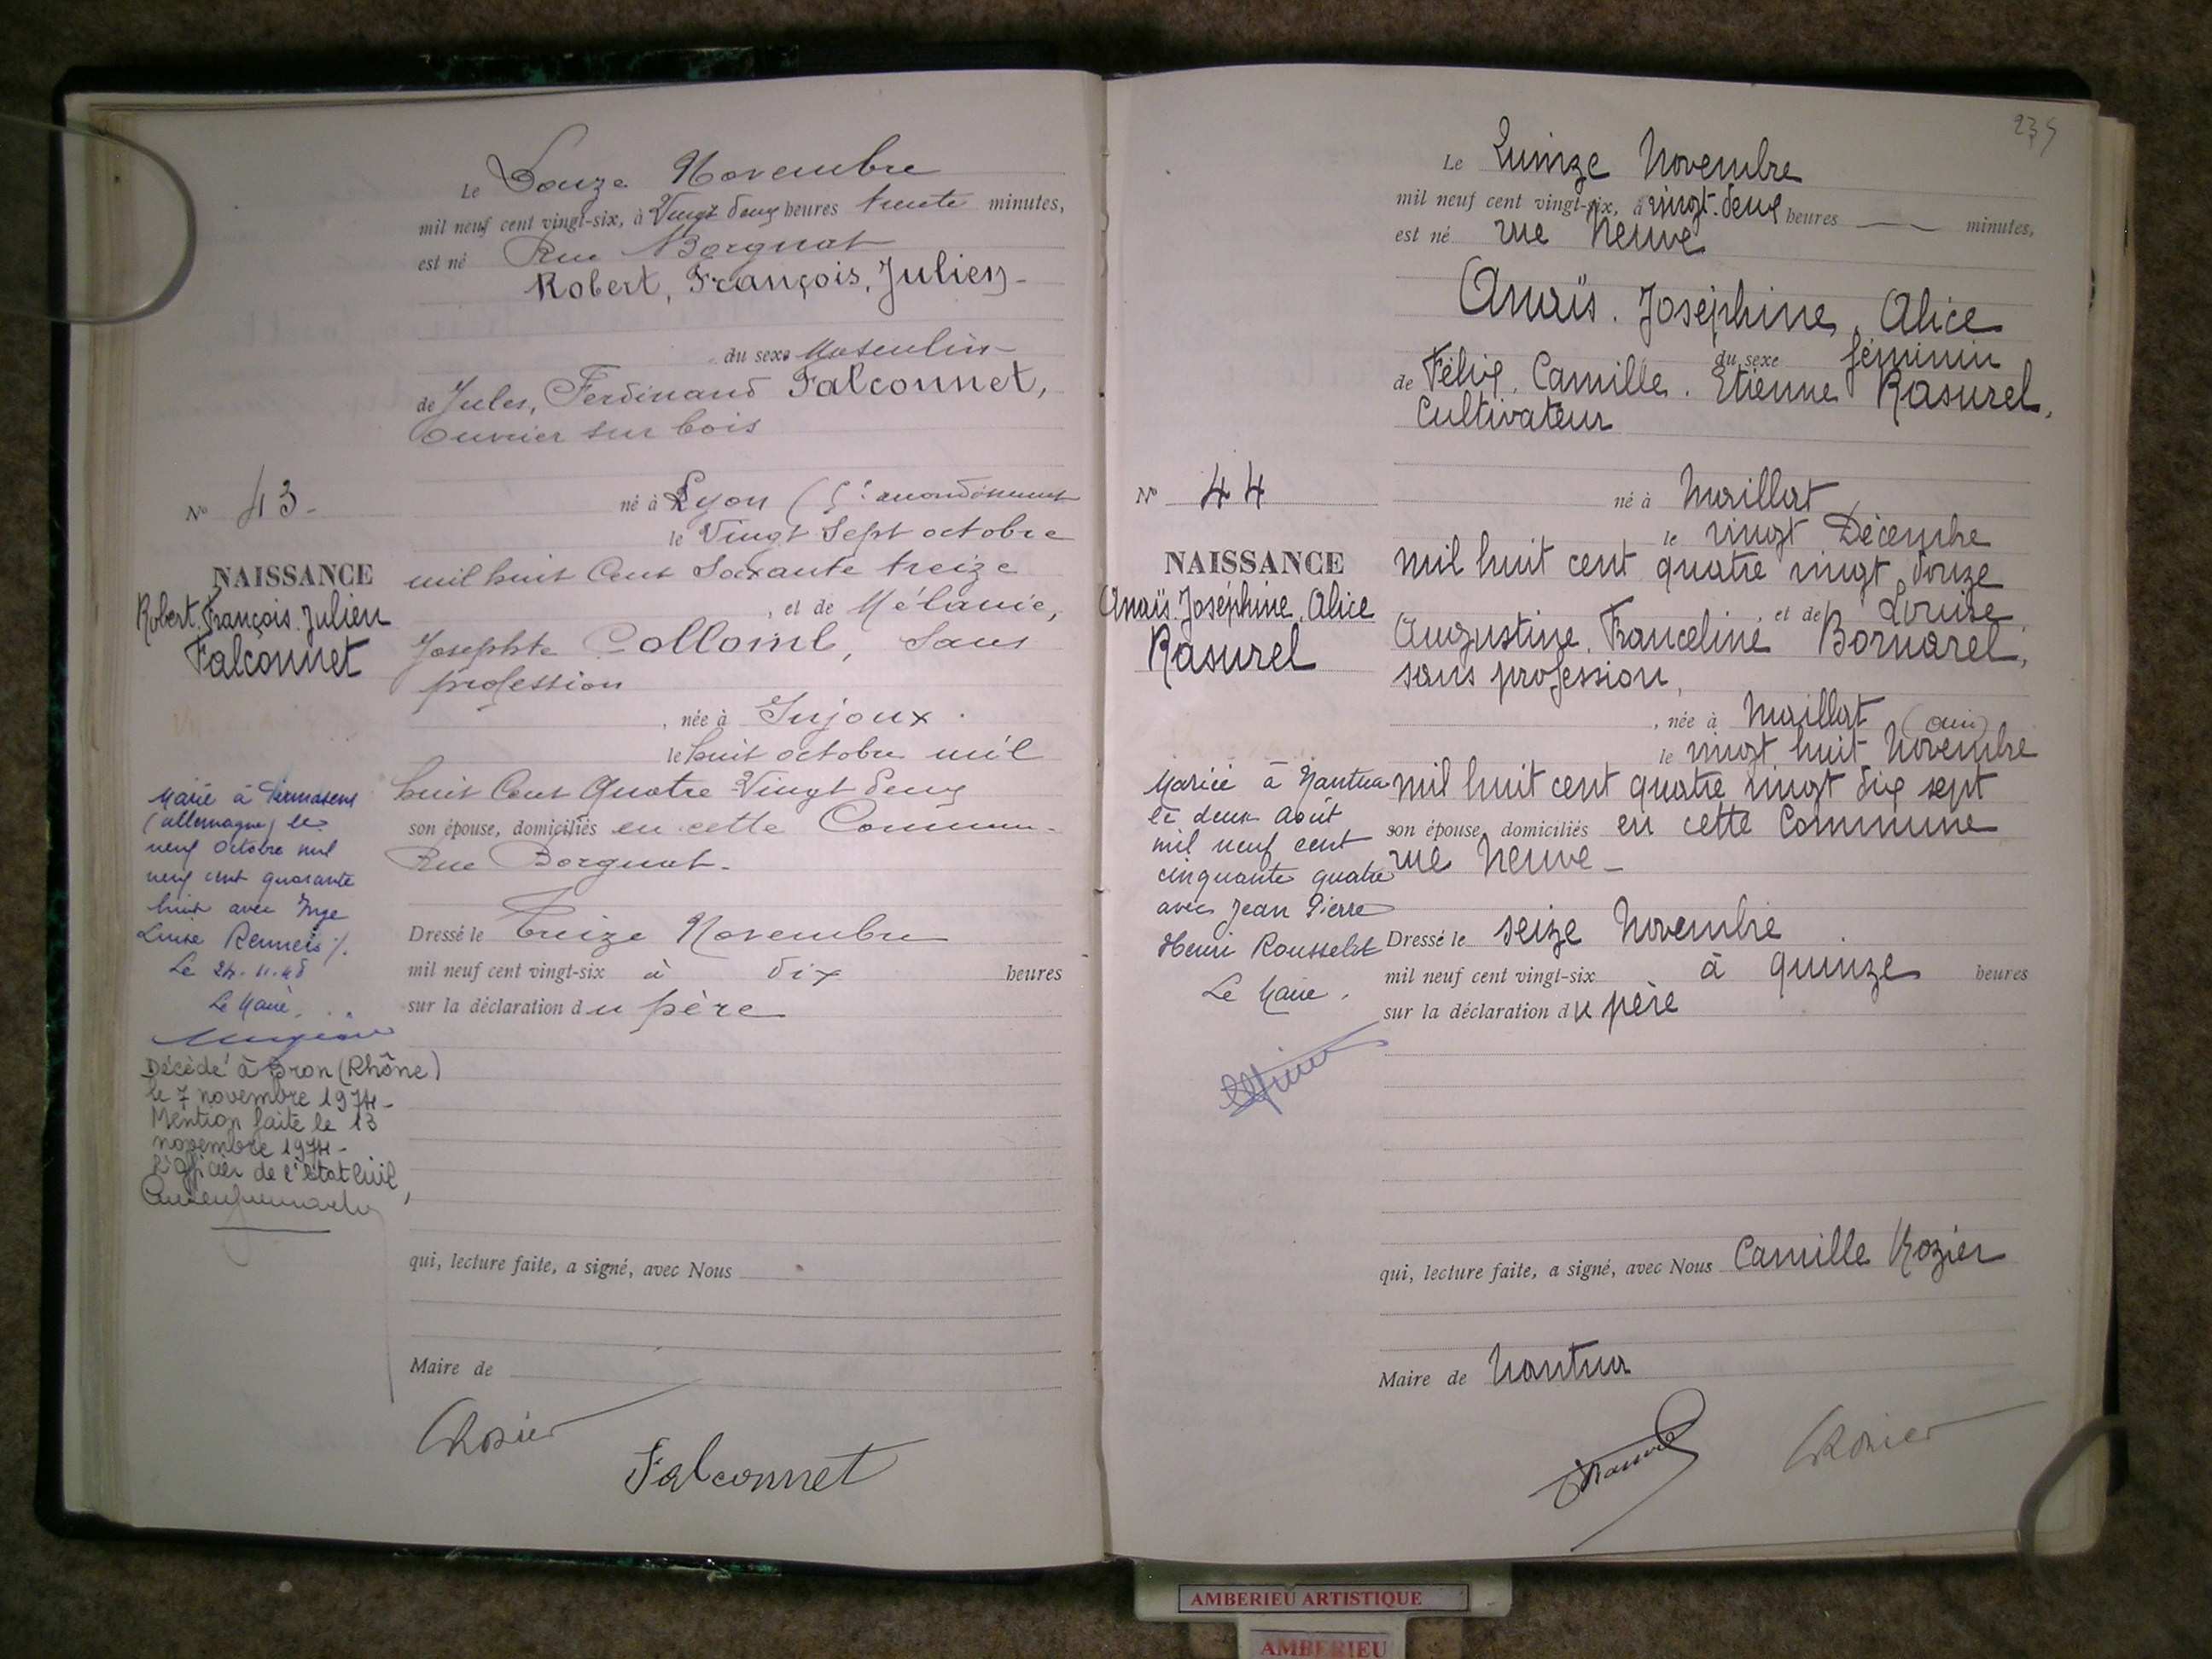 Le Douze Novembre
mil neuf cent vingt-six, à Vingt deux heures trente minutes,
est né Rue Borgnat
Robert, François, Julien-
du sexe Masculin
de Jules, Ferdinand Falconnet,
Ouvrier sur bois
N° 43-
né à Lyon (5e arrondissement
le Vingt Sept octobre
NAISSANCE
mil huit Cent Soixante treize
Robert, François, Julien
Falconnet
, et de Mélanie,
Josephte Collomb, Sans
profession
, née à Injoux.
le huit octobre mil
huit Cent Quatre Vingt deux
son épouse, domiciliés en cette Commune-
Rue Borgnat-
Dressé le Treize Novembre
mil neuf cent vingt-six à dix heures
sur la déclaration du père
Marié à Pirmasens
(Allemagne) le
neuf Octobre mil
neuf cent quarante
huit avec Inge
Luise Renneis ./.
Le 24.11.48
Le Maire,
Décédé à Bron (Rhône)
le 7 novembre 1974-
Mention faite le 13
novembre 1974-
L'officier de l'état civil,
qui, lecture faite, a signé, avec Nous
Maire de
CRozier
Falconnet
235
Le Quinze Novembre
mil neuf cent vingt-six, à vingt-deux heures — minutes,
est né rue Neuve
Anaïs. Joséphine, Alice
du sexe féminin
de Félix. Camille. Etienne Rasurel,
Cultivateur
N° 44
né à Maillat
le vingt Décembre
NAISSANCE
mil huit cent quatre vingt douze
Anaïs. Joséphine. Alice
Rasurel
, et de Louise,
Augustine. Franceline Bornarel,
sans profession,
, née à Maillat (Ain)
le vingt huit Novembre
mil huit cent quatre vingt dix sept
son épouse, domiciliés en cette Commune
rue Neuve-
Dressé le seize Novembre
mil neuf cent vingt-six à quinze heures
sur la déclaration du père
Mariée à Nantua
le deux Août
mil neuf cent
cinquante quatre
avec Jean Pierre
Henri Rousselot
Le Maire.
qui, lecture faite, a signé, avec Nous Camille Rozier
Maire de Nantua
CRozier
AMBERIEU ARTISTIQUE
AMBERIEU